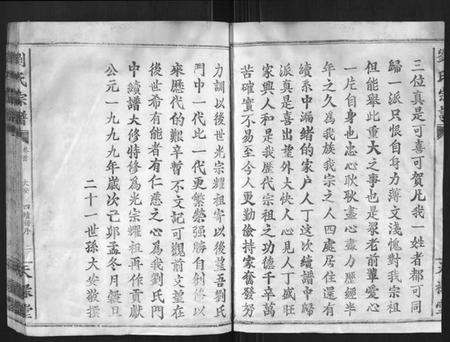 三位真是可喜可賀凡我一姓者都可同
歸一派只恨自身力薄文淺愧對我宗祖
但能舉此重大之事也是眾老前輩愛心
一片自身也忠心耿耿盡心盡力歷經半
年之久為我族我宗之人四處居住還有
續系中漏緒的家户人丁這次續譜中歸
派真是喜出望外大快人心見人丁盛旺
家興人和是我歷代宗祖之功德千辛萬
苦確實不易至今人更勤儉持家奮發努
力訓以後世光宗耀祖寄以後望吾劉氏
門中一代比一代更繁榮強勝自創修以
來歷代的艱辛暫不文記可觀前文並在
後世希有能者有仁愻之心為我劉氏門
中續譜大修特修為光宗耀祖再作貢獻
公元一九九九年歲次己卯孟冬月穀旦
二十一世孫大安敬撰
劉氏宗譜
卷首
天祿堂
劉氏宗譜
天祿堂